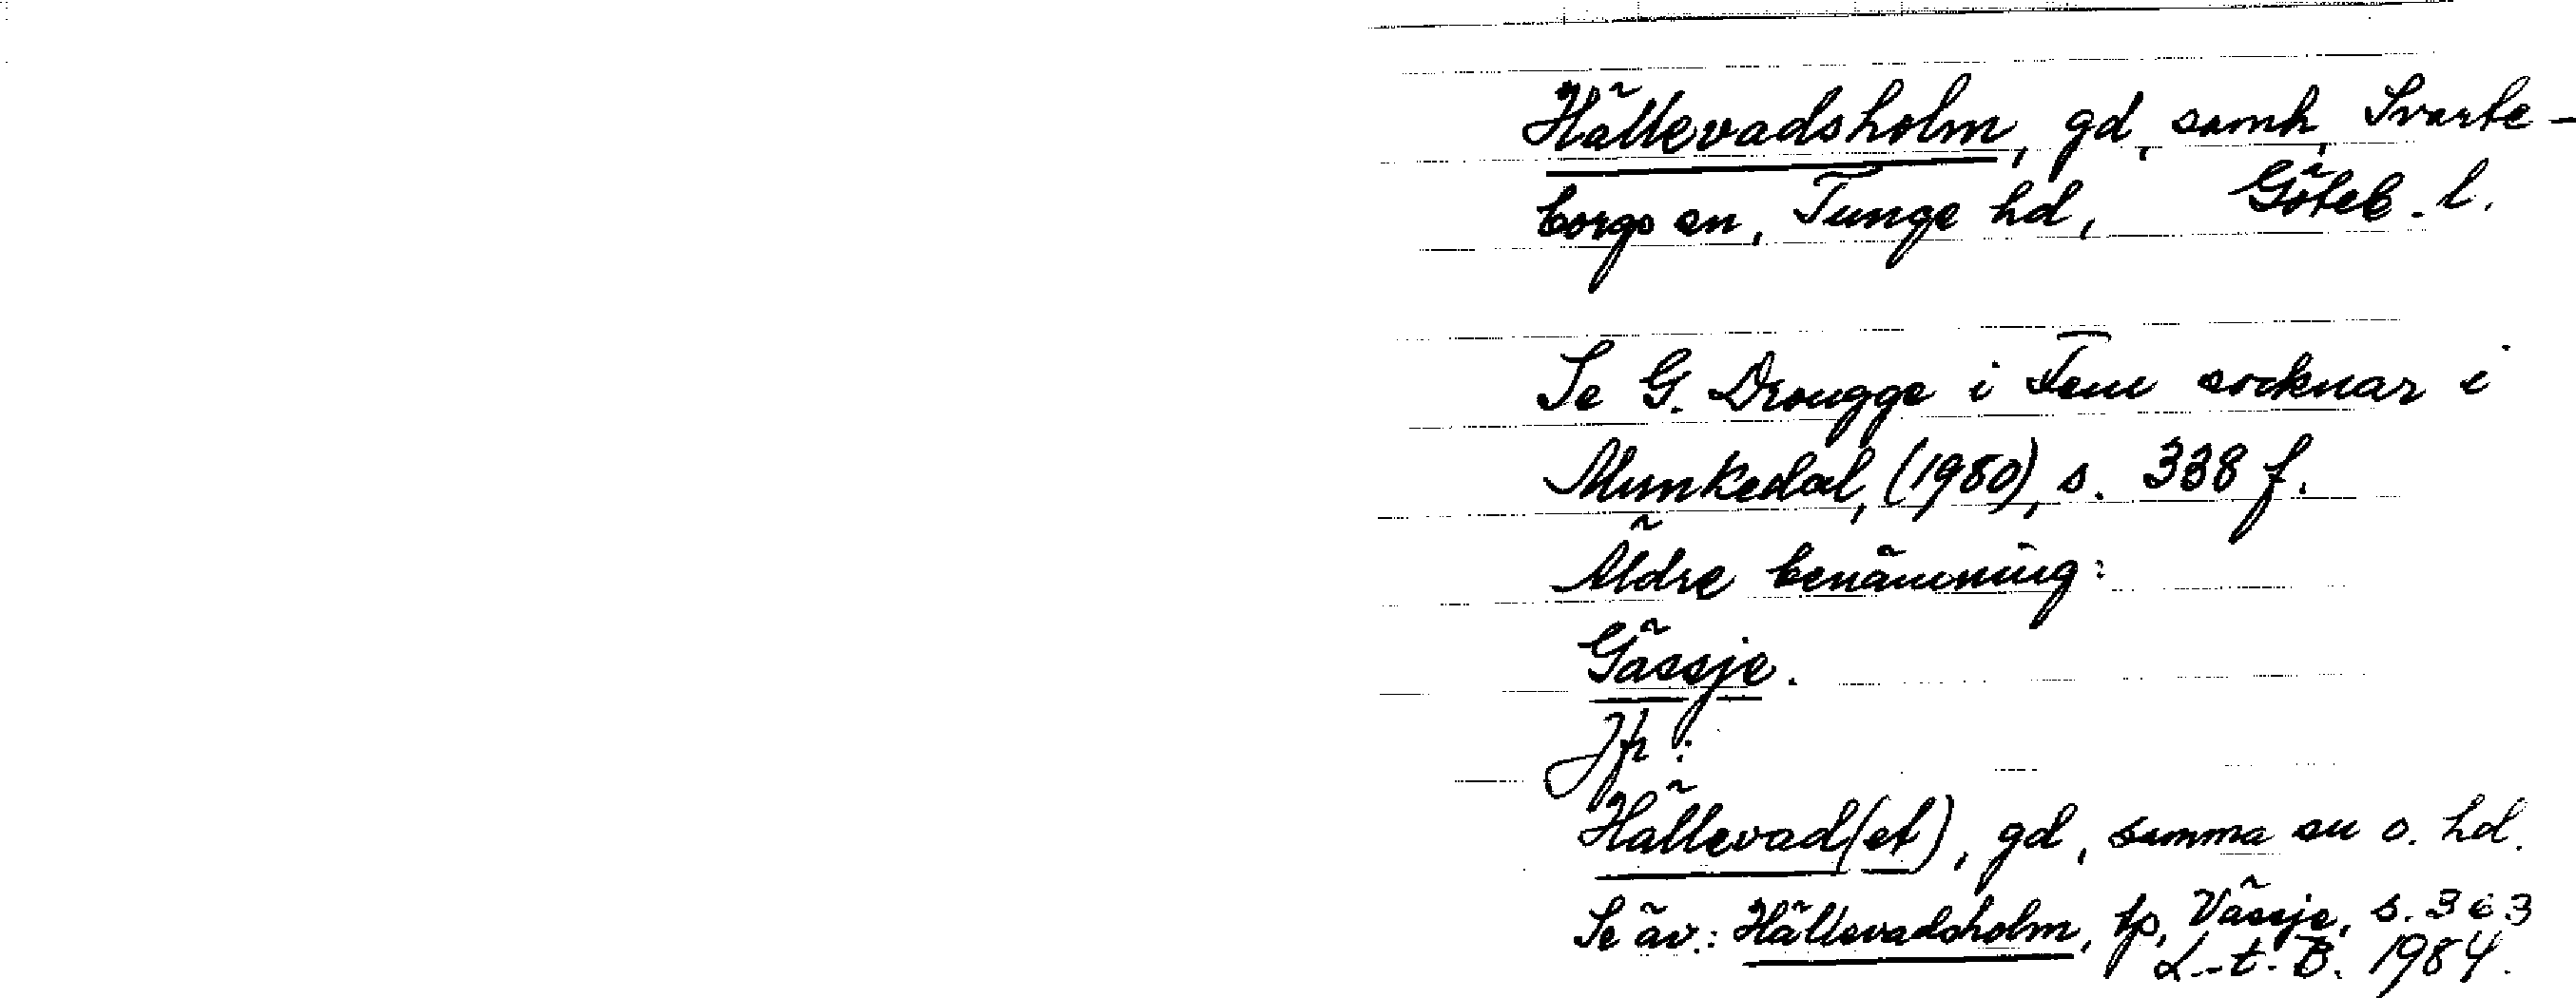 Hällevadsholm, gd, samh, Svarte-
borgs sn, Tunge hd, Göteb. l.
Se G. Drougge i Fem socknar i
Munkedal, (1980), s. 338 f.
Äldre benämning:
Gässje.
Jfr:
Hällevad(et), gd, samma sn o. hd.
Se äv.: Hällevadsholm, tp, Vässje, s. 363
L-t. B. 1984.